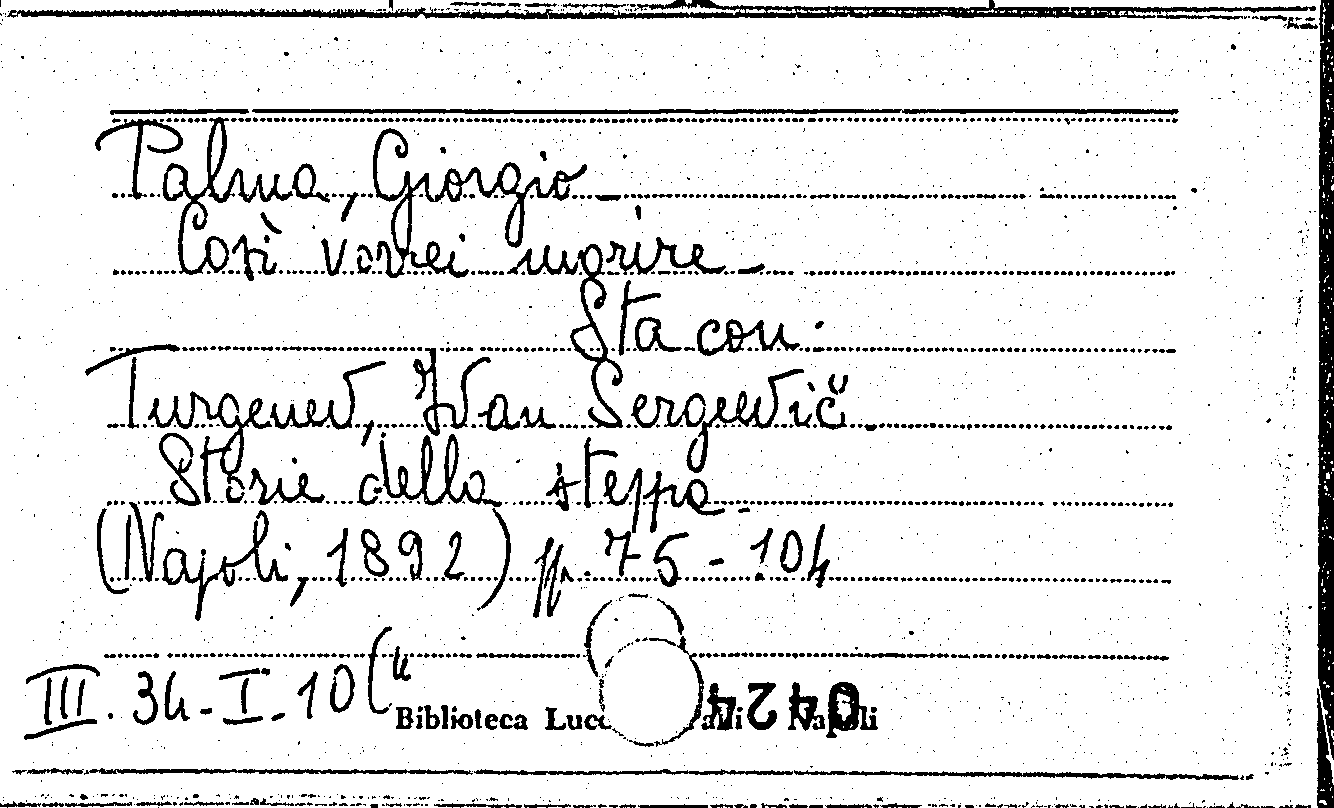 Palma, Giorgio_
Così vorrei morire_
Sta con:
Turgenev, Ivan Sergeevič_
Storie della steppa_
(Napoli, 1892) pp. 75-104
III. 34-I-10(
Biblioteca Napoli